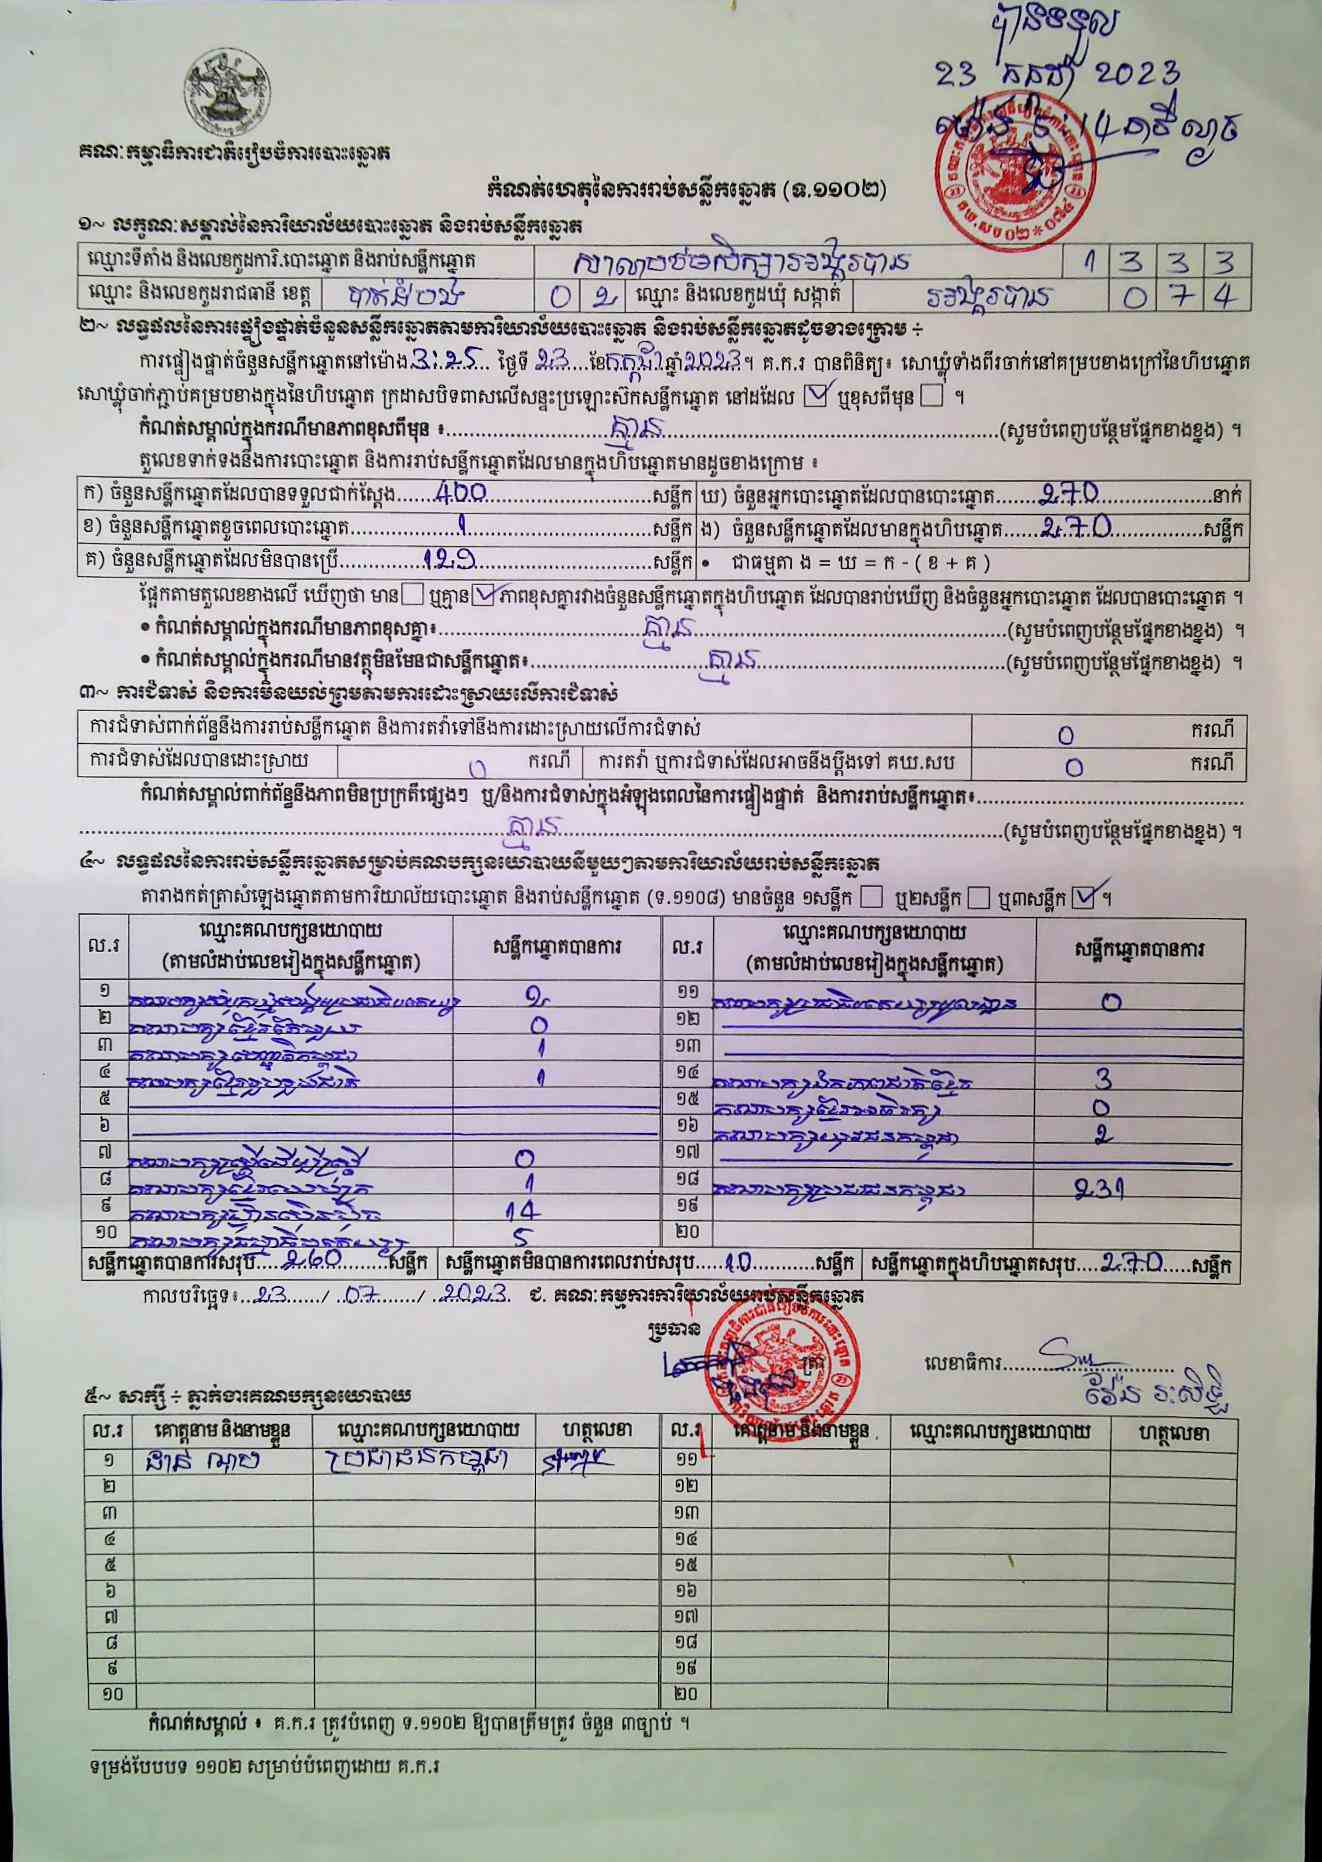 បានទទួល
23 កក្កដា 2023
ម៉ោង 14 នាទី ល្ងាច
គណៈកម្មាធិការជាតិរៀបចំការបោះឆ្នោត
កំណត់ហេតុនៃការរាប់សន្លឹកឆ្នោត (ទ.១១០២)
១~ លក្ខណៈសម្គាល់នៃការិយាល័យបោះឆ្នោត និងរាប់សន្លឹកឆ្នោត
ឈ្មោះទីតាំង និងលេខកូដការិ.បោះឆ្នោត និងរាប់សន្លឹកឆ្នោត សាលាបឋមសិក្សាអង្គរបាន 1 3 3 3
ឈ្មោះ និងលេខកូដរាជធានី ខេត្ត បាត់ដំបង 0 2 ឈ្មោះ និងលេខកូដឃុំ សង្កាត់ 0 7 4
២~ លទ្ធផលនៃការផ្ទៀងផ្ទាត់ចំនួនសន្លឹកឆ្នោតតាមការិយាល័យបោះឆ្នោត និងរាប់សន្លឹកឆ្នោតដូចខាងក្រោម ÷
ការផ្ទៀងផ្ទាត់ចំនួនសន្លឹកឆ្នោតនៅម៉ោង 3:25 ថ្ងៃទី 23 ខែ កក្កដា ឆ្នាំ 2023 ។ គ.ក.រ បានពិនិត្យ៖ សោឃ្លុំទាំងពីរចាក់នៅគម្របខាងក្រៅនៃហិបឆ្នោត
សោឃ្លុំចាក់ភ្ជាប់គម្របខាងក្នុងនៃហិបឆ្នោត ក្រដាសបិទពាសលើសន្ទះប្រឡោះស៊កសន្លឹកឆ្នោត នៅដដែល ☑ ឬខុសពីមុន ☐ ។
កំណត់សម្គាល់ក្នុងករណីមានភាពខុសពីមុន ៖ គ្មាន (សូមបំពេញបន្ថែមផ្នែកខាងខ្នង) ។
តួលេខទាក់ទងនឹងការបោះឆ្នោត និងការរាប់សន្លឹកឆ្នោតដែលមានក្នុងហិបឆ្នោតមានដូចខាងក្រោម ៖
ក) ចំនួនសន្លឹកឆ្នោតដែលបានទទួលជាក់ស្តែង 400 សន្លឹក ឃ) ចំនួនអ្នកបោះឆ្នោតដែលបានបោះឆ្នោត 270 នាក់
ខ) ចំនួនសន្លឹកឆ្នោតខូចពេលបោះឆ្នោត 1 សន្លឹក ង) ចំនួនសន្លឹកឆ្នោតដែលមានក្នុងហិបឆ្នោត 270 សន្លឹក
គ) ចំនួនសន្លឹកឆ្នោតដែលមិនបានប្រើ 129 សន្លឹក • ជាធម្មតា ង = ឃ = ក - ( ខ + គ )
ផ្អែកតាមតួលេខខាងលើ ឃើញថា មាន ☐ ឬគ្មាន ☑ ភាពខុសគ្នារវាងចំនួនសន្លឹកឆ្នោតក្នុងហិបឆ្នោត ដែលបានរាប់ឃើញ និងចំនួនអ្នកបោះឆ្នោត ដែលបានបោះឆ្នោត ។
• កំណត់សម្គាល់ក្នុងករណីមានភាពខុសគ្នា៖ គ្មាន (សូមបំពេញបន្ថែមផ្នែកខាងខ្នង) ។
• កំណត់សម្គាល់ក្នុងករណីមានវត្ថុមិនមែនជាសន្លឹកឆ្នោត៖ គ្មាន (សូមបំពេញបន្ថែមផ្នែកខាងខ្នង) ។
៣~ ការជំទាស់ និងការមិនយល់ព្រមតាមការដោះស្រាយលើការជំទាស់
ការជំទាស់ពាក់ព័ន្ធនឹងការរាប់សន្លឹកឆ្នោត និងការតវ៉ាទៅនឹងការដោះស្រាយលើការជំទាស់ 0 ករណី
ការជំទាស់ដែលបានដោះស្រាយ 0 ករណី ការតវ៉ា ឬការជំទាស់ដែលអាចនឹងប្តឹងទៅ គឃ.សប 0 ករណី
កំណត់សម្គាល់ពាក់ព័ន្ធនឹងភាពមិនប្រក្រតីផ្សេងៗ ឬ/និងការជំទាស់ក្នុងអំឡុងពេលនៃការផ្ទៀងផ្ទាត់ និងការរាប់សន្លឹកឆ្នោត៖
គ្មាន (សូមបំពេញបន្ថែមផ្នែកខាងខ្នង) ។
៤~ លទ្ធផលនៃការរាប់សន្លឹកឆ្នោតសម្រាប់គណបក្សនយោបាយនីមួយៗតាមការិយាល័យរាប់សន្លឹកឆ្នោត
តារាងកត់ត្រាសំឡេងឆ្នោតតាមការិយាល័យបោះឆ្នោត និងរាប់សន្លឹកឆ្នោត (ទ.១១០៨) មានចំនួន ១សន្លឹក ☐ ឬ២សន្លឹក ☐ ឬ៣សន្លឹក ☑ ។
ល.រ ឈ្មោះគណបក្សនយោបាយ (តាមលំដាប់លេខរៀងក្នុងសន្លឹកឆ្នោត) សន្លឹកឆ្នោតបានការ ល.រ ឈ្មោះគណបក្សនយោបាយ (តាមលំដាប់លេខរៀងក្នុងសន្លឹកឆ្នោត) សន្លឹកឆ្នោតបានការ
១ ១១ 0
២ គណបក្សខ្មែរតែមួយ 0 ១២
៣ 1 ១៣
៤ 1 ១៤ គណបក្សឯកភាពជាតិខ្មែរ 3
៥ ១៥ 0
៦ ១៦ គណបក្សយុវជនកម្ពុជា 2
៧ 0 ១៧
៨ 1 ១៨ គណបក្សប្រជាជនកម្ពុជា 231
៩ គណបក្សហ្វ៊ុនស៊ិនប៉ិច 14 ១៩
១០ 5 ២០
សន្លឹកឆ្នោតបានការសរុប 260 សន្លឹក សន្លឹកឆ្នោតមិនបានការពេលរាប់សរុប 10 សន្លឹក សន្លឹកឆ្នោតក្នុងហិបឆ្នោតសរុប 270 សន្លឹក
កាលបរិច្ឆេទ៖ 23 / 07 / 2023 ជ. គណៈកម្មការការិយាល័យរាប់សន្លឹកឆ្នោត
ប្រធាន
ត្រា លេខាធិការ
៥~ សាក្សី ÷ ភ្នាក់ងារគណបក្សនយោបាយ
ល.រ គោត្តនាម និងនាមខ្លួន ឈ្មោះគណបក្សនយោបាយ ហត្ថលេខា ល.រ គោត្តនាម និងនាមខ្លួន ឈ្មោះគណបក្សនយោបាយ ហត្ថលេខា
១ ប្រជាជនកម្ពុជា ១១
២ ១២
៣ ១៣
៤ ១៤
៥ ១៥
៦ ១៦
៧ ១៧
៨ ១៨
៩ ១៩
១០ ២០
កំណត់សម្គាល់ ៖ គ.ក.រ ត្រូវបំពេញ ទ.១១០២ ឱ្យបានត្រឹមត្រូវ ចំនួន ៣ច្បាប់ ។
ទម្រង់បែបបទ ១១០២ សម្រាប់បំពេញដោយ គ.ក.រ